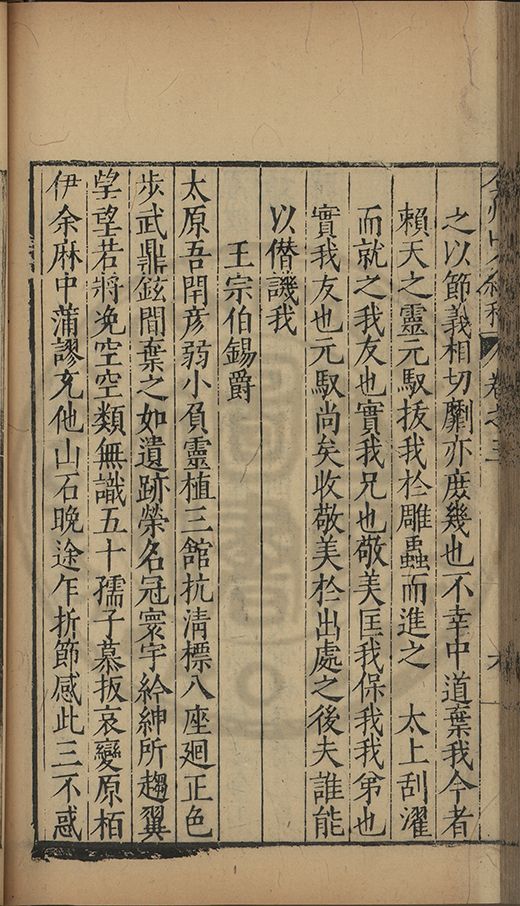 弇州山人續稿 卷之三
之以節義相切劘亦庶幾也不幸中道棄我今者
賴天之靈元馭拔我於雕蟲而進之 太上刮濯
而就之我友也實我兄也敬美匡我保我我弟也
實我友也元馭尚矣收敬美於出處之後夫誰能
以僭譏我
王宗伯錫爵
太原吾閈彦弱小負靈植三館抗清標八座廻正色
步武鼎鉉間棄之如遺跡榮名冠寰宇紟紳所趨翼
望望若將浼空空類無識五十孺子慕扳哀變原栢
伊余麻中蒲謬充他山石晚途乍折節感此三不惑